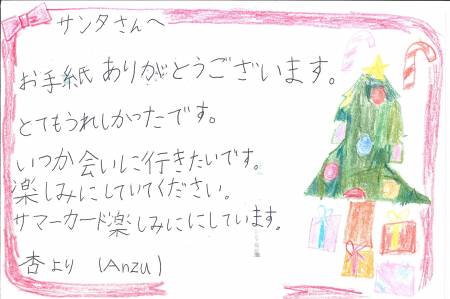 サンタさんへ
お手紙ありがとうございます。
とてもうれしかったです。
いつか会いに行きたいです。
楽しみにしていてください。
サマーカード楽しみににしています。
杏より (Anzu)